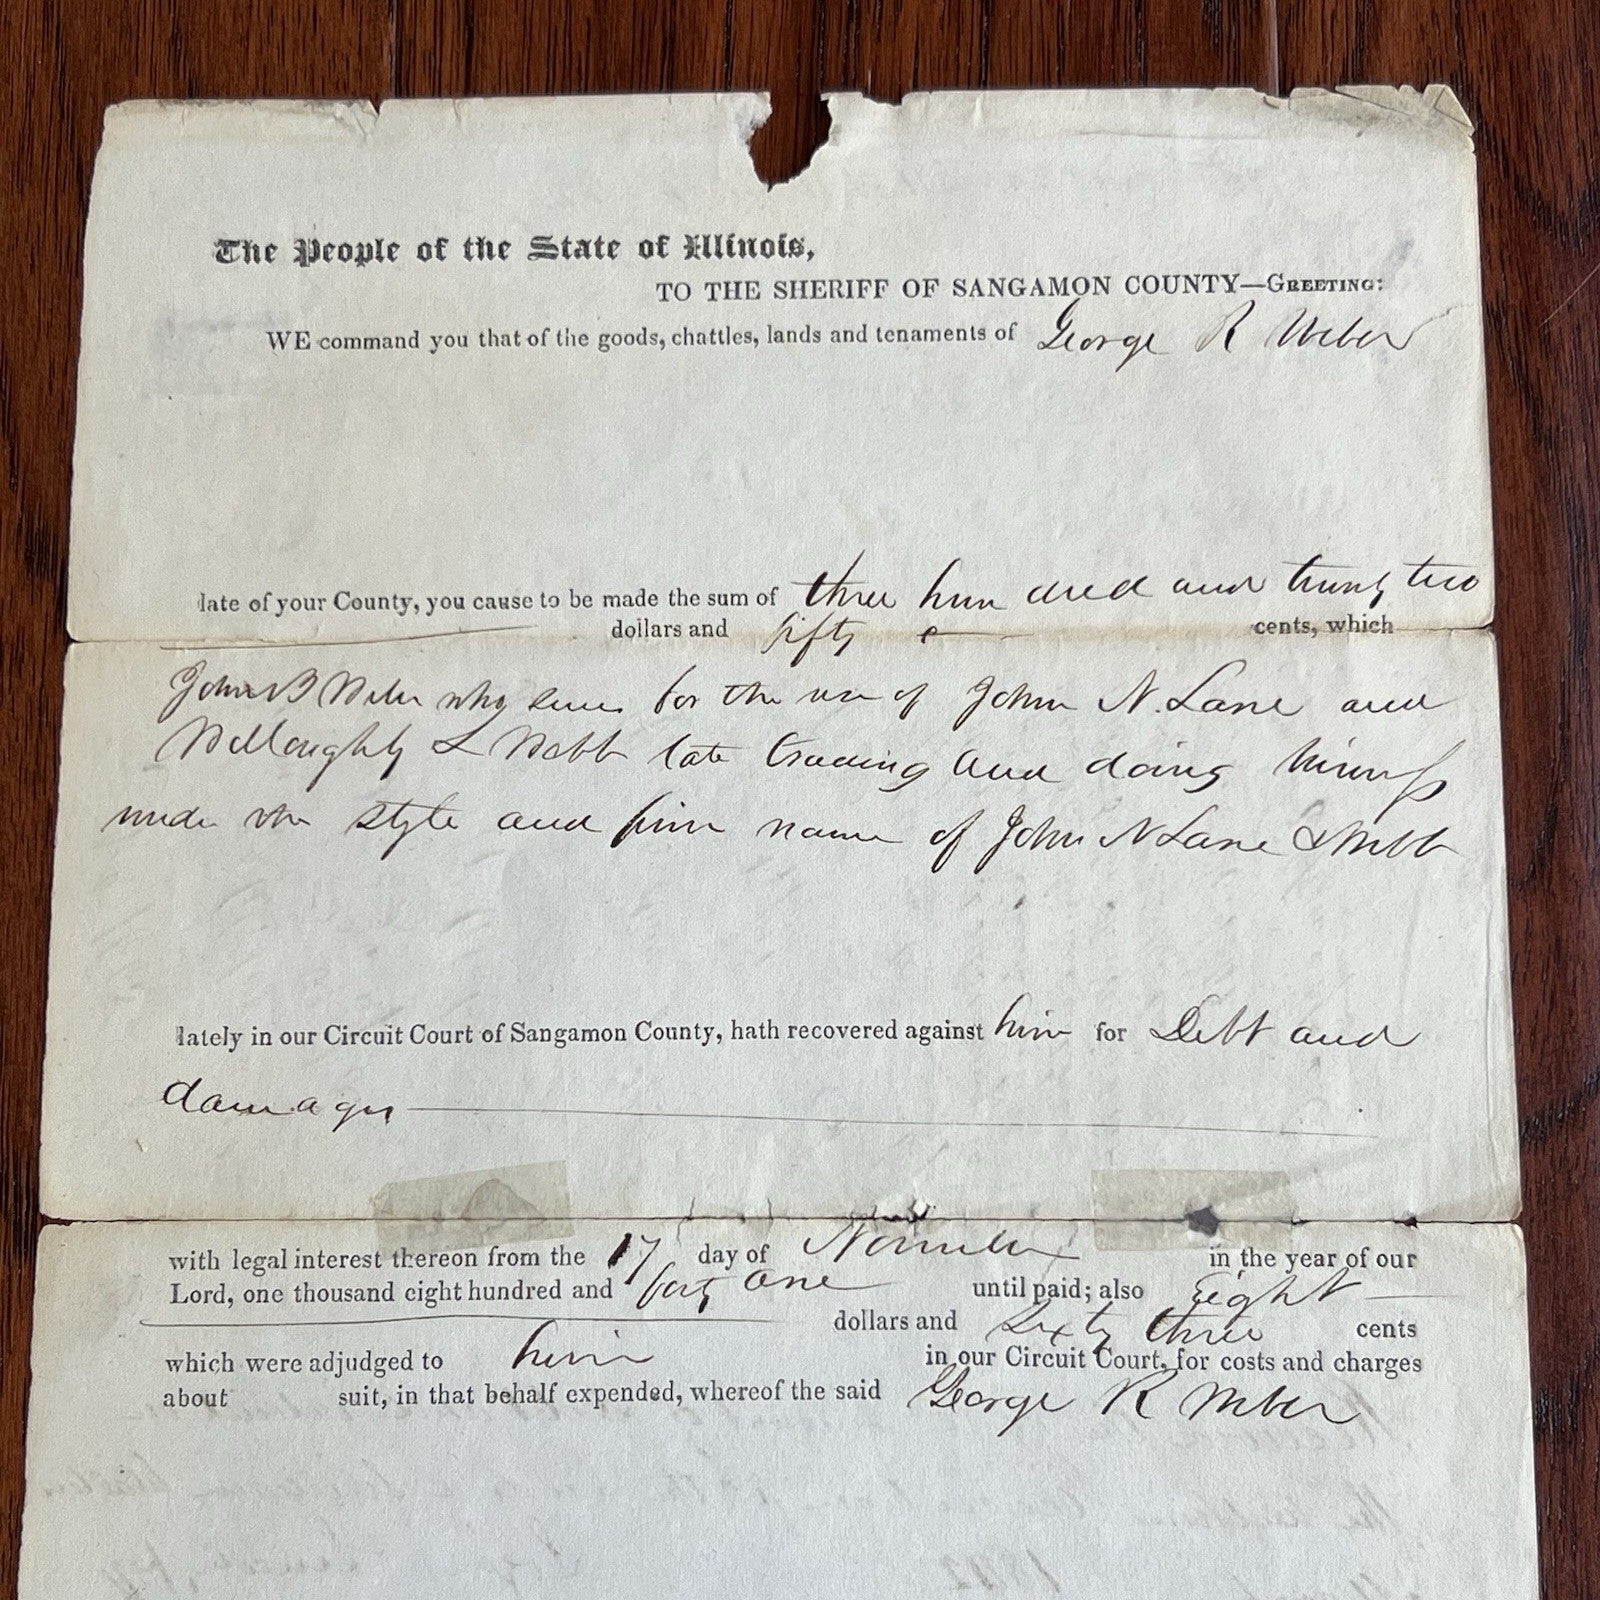 The People of the State of Illinois,
TO THE SHERIFF OF SANGAMON COUNTY—GREETING:
WE command you that of the goods, chattles, lands and tenaments of George R Weber
late of your County, you cause to be made the sum of three hundred and twenty two
dollars and fifty cents, which
John B Weber who sues for the use of John N. Lane and
Willoughby L Webb late trading and doing business
under the style and firm name of John N Lane & Webb
lately in our Circuit Court of Sangamon County, hath recovered against him for Debt and
damages
with legal interest thereon from the 17 day of November in the year of our
Lord, one thousand eight hundred and forty one until paid; also Eight
dollars and sixty three cents
which were adjudged to him in our Circuit Court, for costs and charges
about suit, in that behalf expended, whereof the said George R Weber